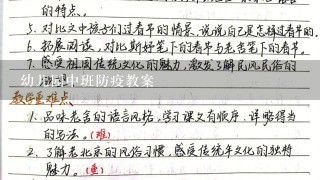 的特点。
5. 对比文中孩子们过春节的情景,说说自己是怎样过春节的。
6. 拓展阅读,对比斯好笔下的春节与老舍笔下的春节。
7. 感受祖国传统文化的魅力,激发了解民风民俗的
幼儿园中班防疫教案
教学重难点
1. 品味老舍的语言风格,学习课文有顺序、详略得当
的写法。(难)
2. 了解老北京的风俗习惯,感受传统年文化的独特
魅力。(重)